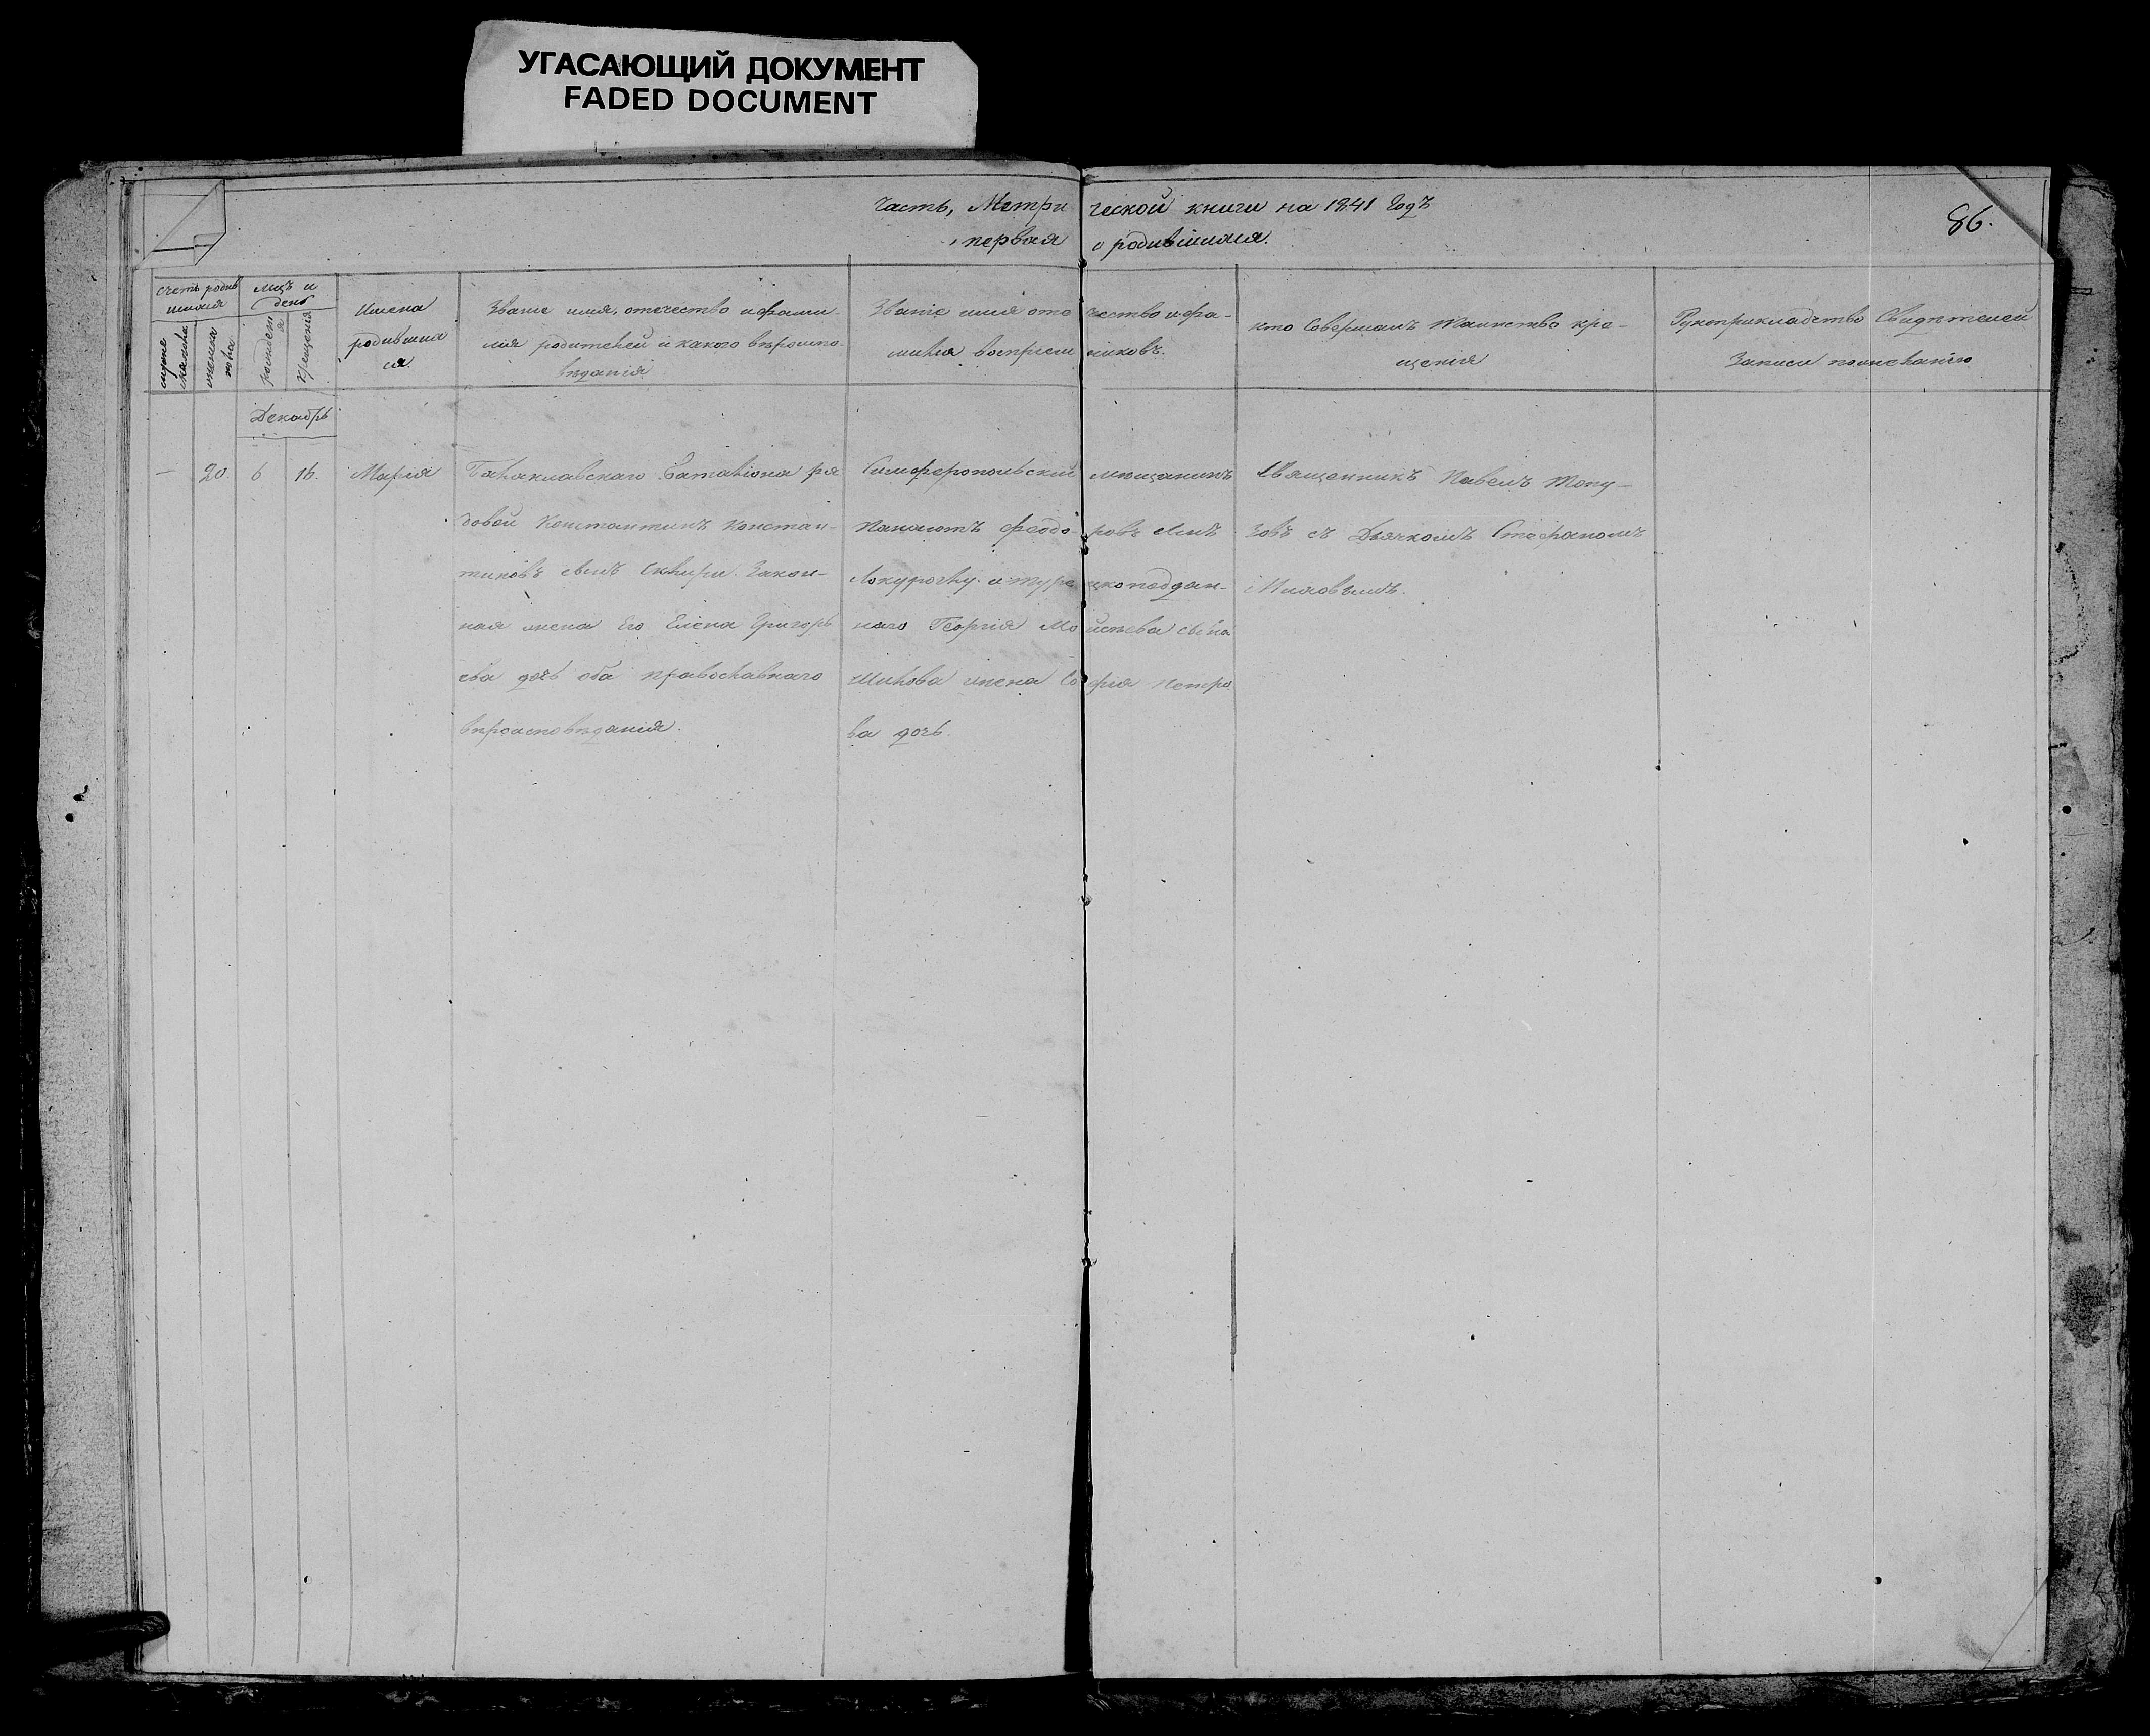 УГАСАЮЩИЙ ДОКУМЕНТ
FADED DOCUMENT
Часть, Метрической книги на 1841 годъ
первая о родившихся.
86.
Счетъ родив
шихся
мужеска
женска
мѣц и
день
рожденія
крещенія
Имена
родивших
ся.
Званіе имя, отечество и фами-
лія родителей и какого вѣроиспо-
вѣданія
Званіе имя отечество и фа-
милія воспріемниковъ.
кто совершалъ таинство кре-
щенія
Рукоприкладство свидѣтелей
записи по желанію
Декабрь
— 20. 6 16. Марія
Балаклавскаго баталіона ря
довой Константинъ Констан-
тиновъ сынъ закон-
ная жена его Елена Григорь
ева дочь оба православнаго
вѣроисповѣданія.
Симферопольскій мѣщанинъ
Панаіотъ Феодоровъ сынъ
и турецкоподдан-
наго Георгія сына
жена Софія Петро
ва дочь.
Священникъ Павелъ
съ Дьячкомъ Стефаномъ